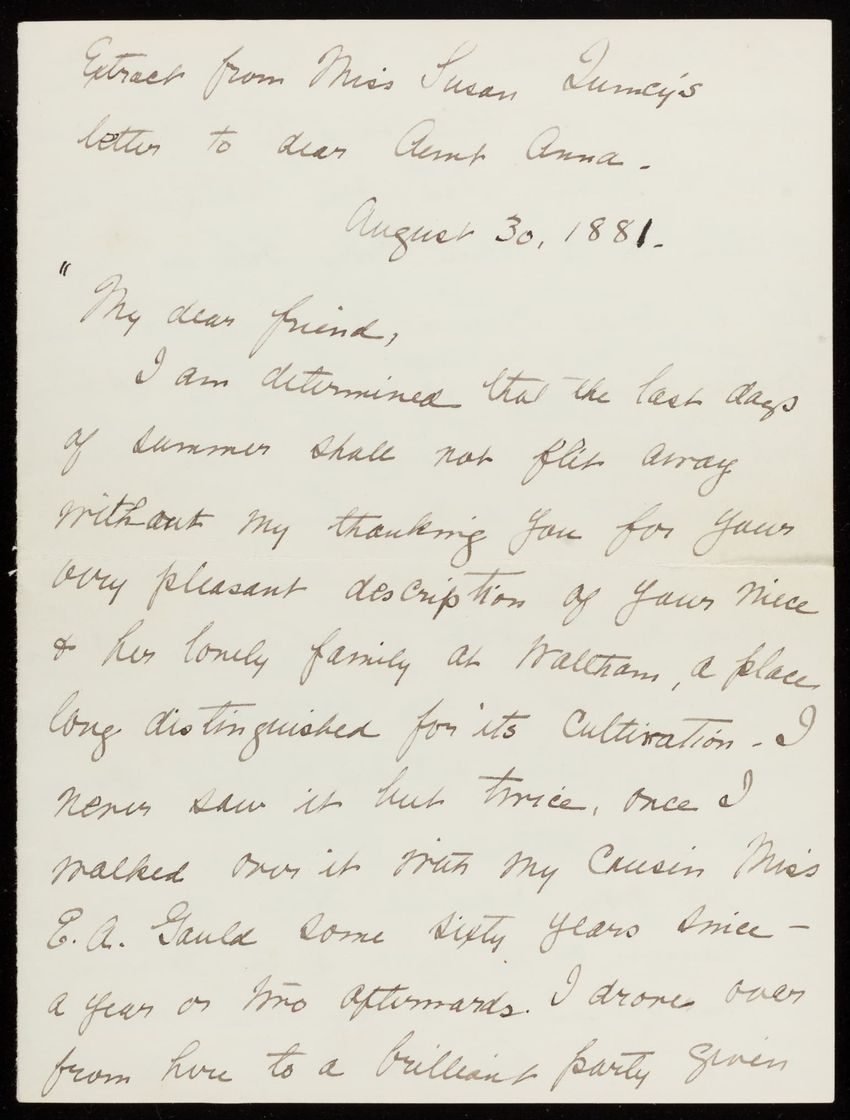 Extract from Miss Susan Quincy's
letter to dear Aunt Anna -
August 30, 1881.
"My dear friend,
I am determined that the last days
of summer shall not flit away
without my thanking you for your
very pleasant description of your niece
& her lovely family at Waltham, a place
long distinguished for its cultivation - I
never saw it but twice, once I
walked over it with my cousin Miss
E. A. Gould some sixty years since -
a year or two afterwards. I drove over
from here to a brilliant party given